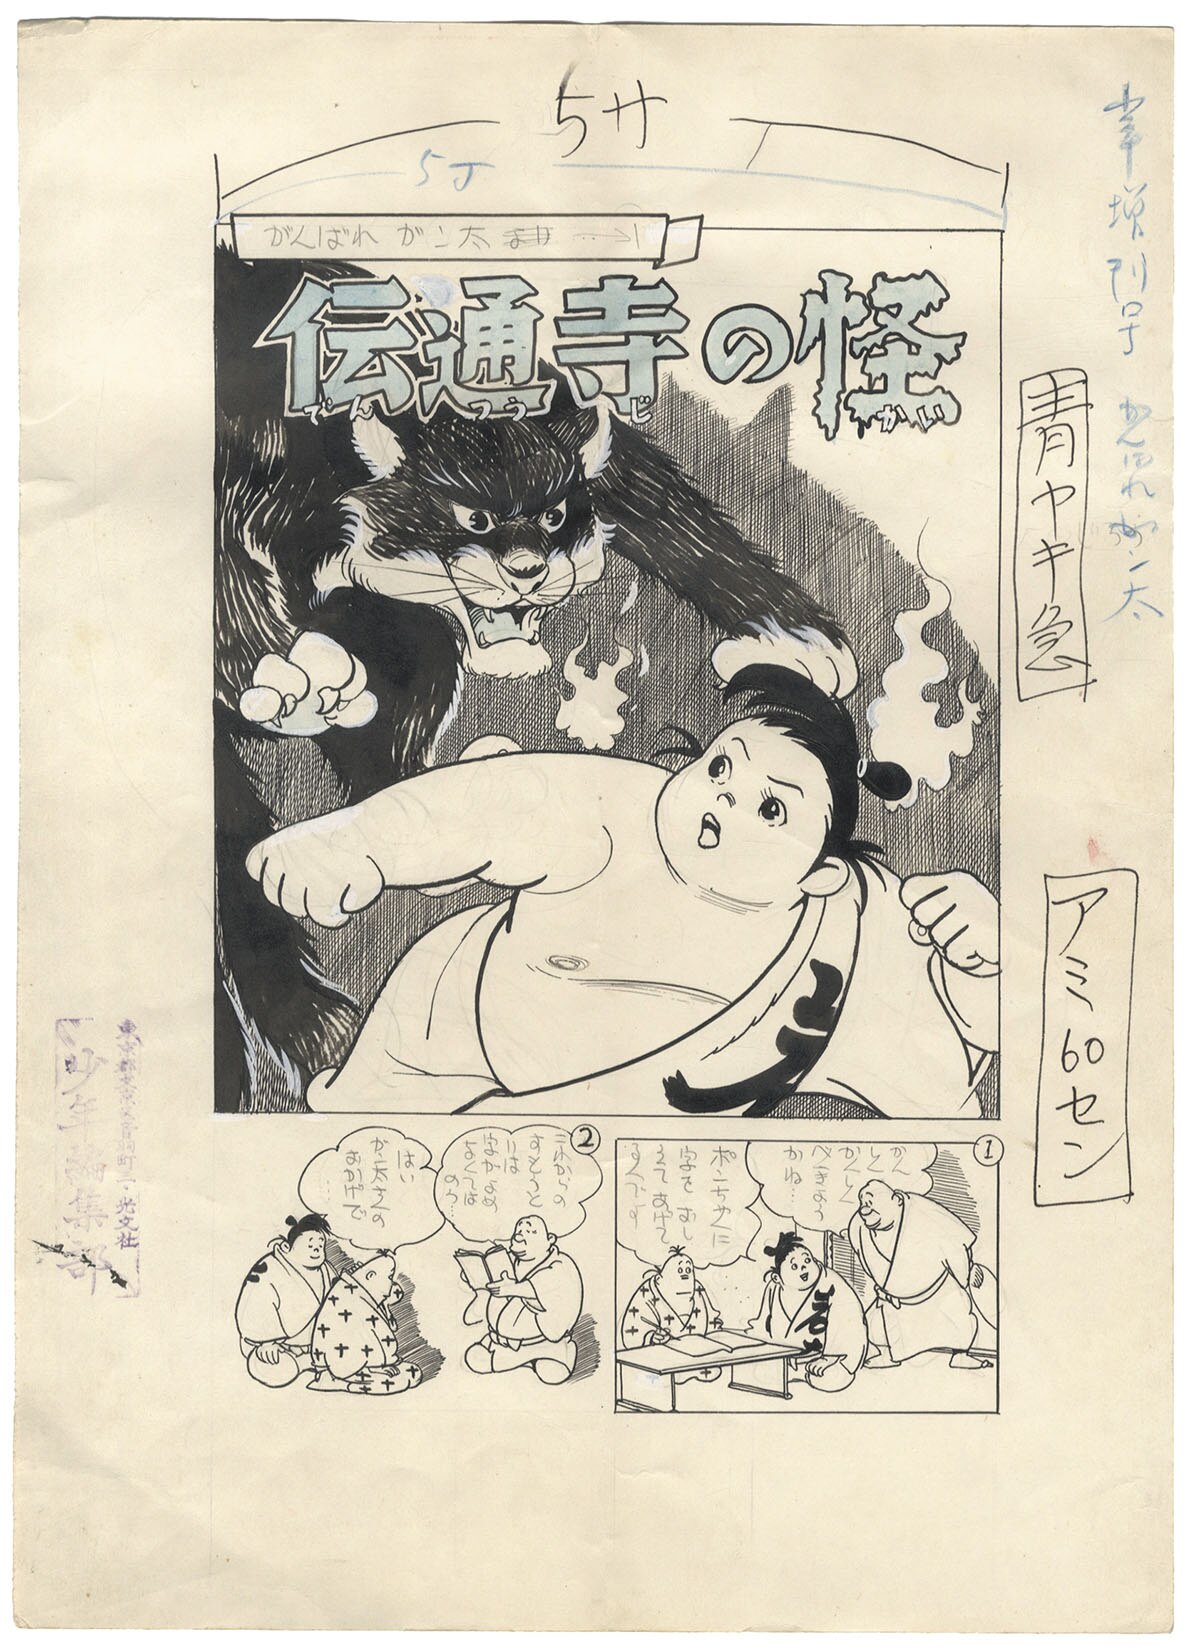 5サ
5J
がんばれ ガン太
伝通寺の怪
でんつうじ かい
青ヤキ急
アミ60セン
東京都文京区音羽町三・光文社
少年編集部
①
かん
しん
かんしん
べきよう
かね…
ポンちゃんに
字をおし
えてあげて
るんです
②
これからの
すもうと
りは
字がよめ
なくては
のう…
はい
ガン太さんの
おかげで
…